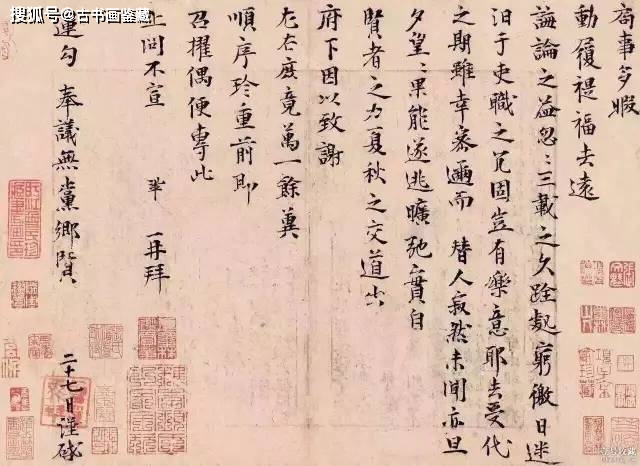 搜狐号@古书画鉴藏
局事多暇
動履禔福去遠
誨論之益忽〻三載之久跧處窮徼日迷
汩于吏職之冗固豈有樂意耶去受代
之期雖幸密邇而替人寂然未聞亦旦
夕望〻果能遂逃曠弛實自
賢者之力夏秋之交道出
府下因以致謝
左右庶竟萬一餘冀
順序珍重前即
召擢偶便專此
上問不宣 鞏 再拜
運勾奉議無黨鄉賢 二十七日謹啟